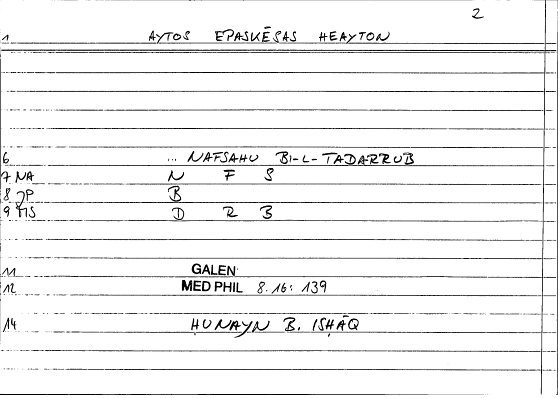 2
1 AYTOS EPASKĒSAS HEAYTON
6 ... NAFSAHU BI-L-TADARRUB
7 NA N F S
8 JP B
9 MS D R B
11 GALEN
12 MED PHIL 8.16: 139
14 ḤUNAYN B. ISḤĀQ